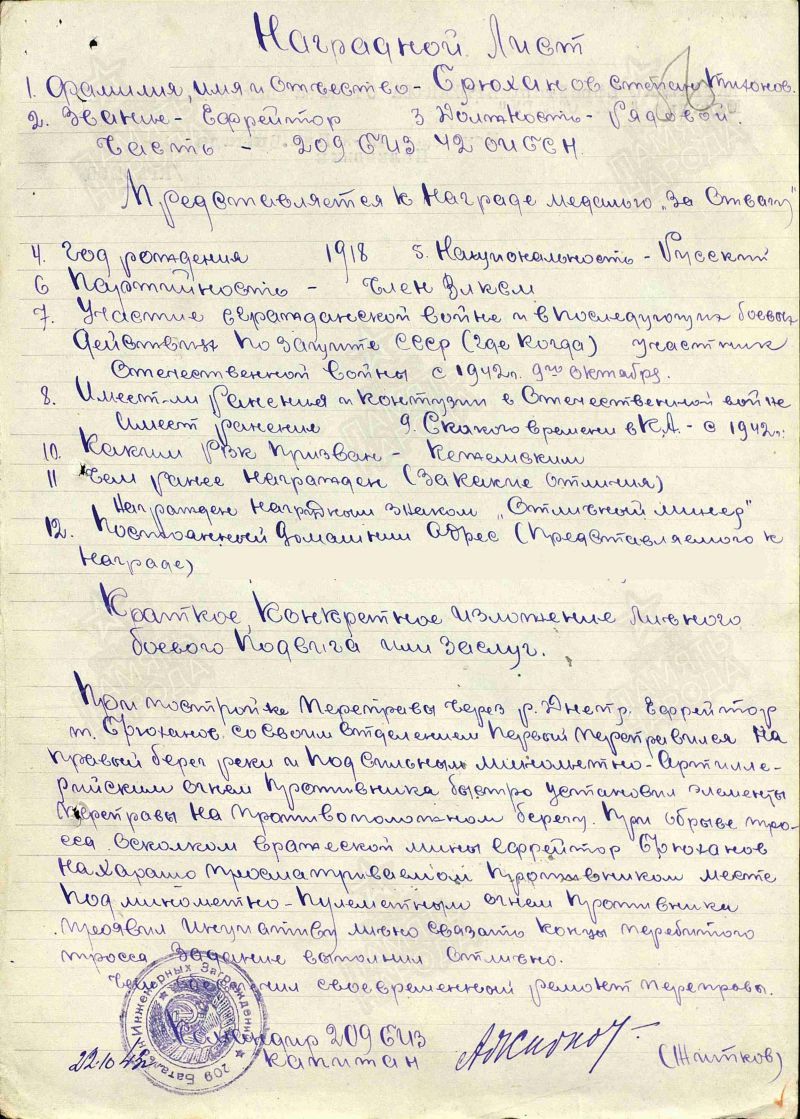 Наградной Лист
1. Фамилия, имя и Отчество - Брюханов Степан Тихонов.
2. Звание - Ефрейтор 3 Должность - Рядовой.
Часть - 209 БИЗ 42 ОИБСН.
Представляется к Награде медалью „За Отвагу"
4. Год рождения 1918 5. Национальность - Русский
6 Партийность - Член Влксм
7. Участие в гражданской войне и в последующих боевых
Действиях по защите СССР (где когда) участник
Отечественной войны с 1942г. 9го октября.
8. Имеет-ли ранения и контузии в Отечественной войне
Имеет ранение 9. С какого времени в К.А. - с 1942г.
10. Каким РВК Призван - Кежемским
11 Чем ранее награжден (За какие отличия)
Награжден нагрудным знаком „Отличный минер"
12. Постоянный Домашний Адрес (Представляемого к
награде)
Краткое, Конкретное изложение личного
боевого Подвига или Заслуг.
При постройке Переправы через р. Днепр. Ефрейтор
т. Брюханов со своим отделением первый переправился на
правый берег реки и под сильным минометно-Артилле-
рийским огнем противника быстро установил элементы
переправы на противоположном берегу. При обрыве тро-
сса осколком вражеской мины ефрейтор Брюханов
на харашо просматриваемом противником месте
под минометно-пулеметным огнем противника
проявил Инициативу лично связать концы перебитого
тросса Задание выполнил Отлично.
своевременный ремонт переправы.
Командир 209 БИЗ
22.10.43г. капитан (Житков)
209 Батальон Инженерных Заграждений